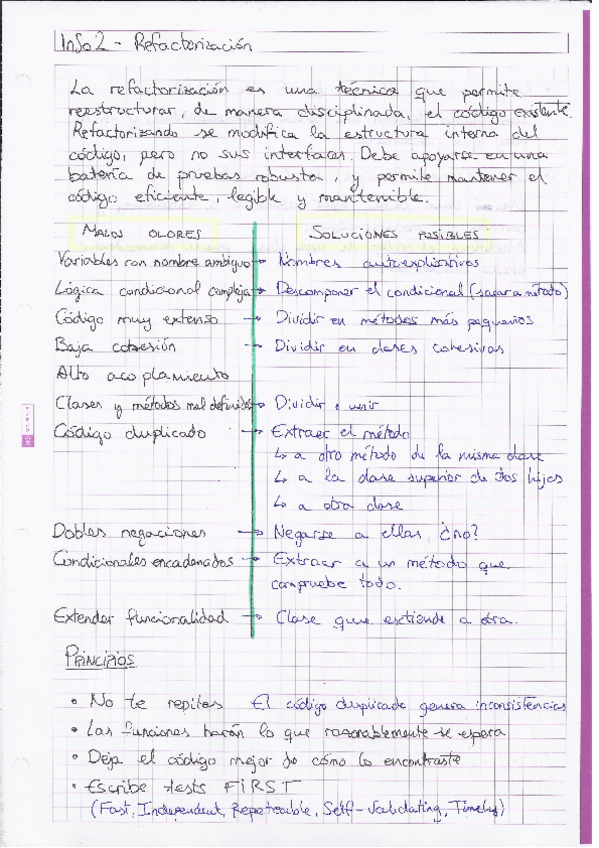 InSo2 - Refactorización
La refactorización es una técnica que permite
reestructurar, de manera disciplinada, el código existente.
Refactorizando se modifica la estructura interna del
código, pero no sus interfaces. Debe apoyarse en una
batería de pruebas robusta, y permite mantener el
código eficiente, legible y mantenible.
MALOS OLORES SOLUCIONES POSIBLES
Variables con nombre ambiguo → Nombres autoexplicativos
Lógica condicional compleja → Descomponer el condicional (sacar a método)
Código muy extenso → Dividir en métodos más pequeños
Baja cohesión → Dividir en clases cohesivas
Alto acoplamiento
Clases y métodos mal definidos → Dividir o unir
Código duplicado → Extraer el método
↳ a otro método de la misma clase
↳ a la clase superior de dos hijos
↳ a otra clase
Dobles negaciones → Negarse a ellas, ¿no?
Condicionales encadenados → Extraer a un método que
compruebe todo.
Extender funcionalidad → Clase que extiende a otra.
PRINCIPIOS
• No te repitas El código duplicado genera inconsistencias
• Las funciones harán lo que razonablemente se espera
• Deja el código mejor de cómo lo encontraste
• Escribe tests FIRST
(Fast, Independent, Repeteable, Self-Validating, Timely)